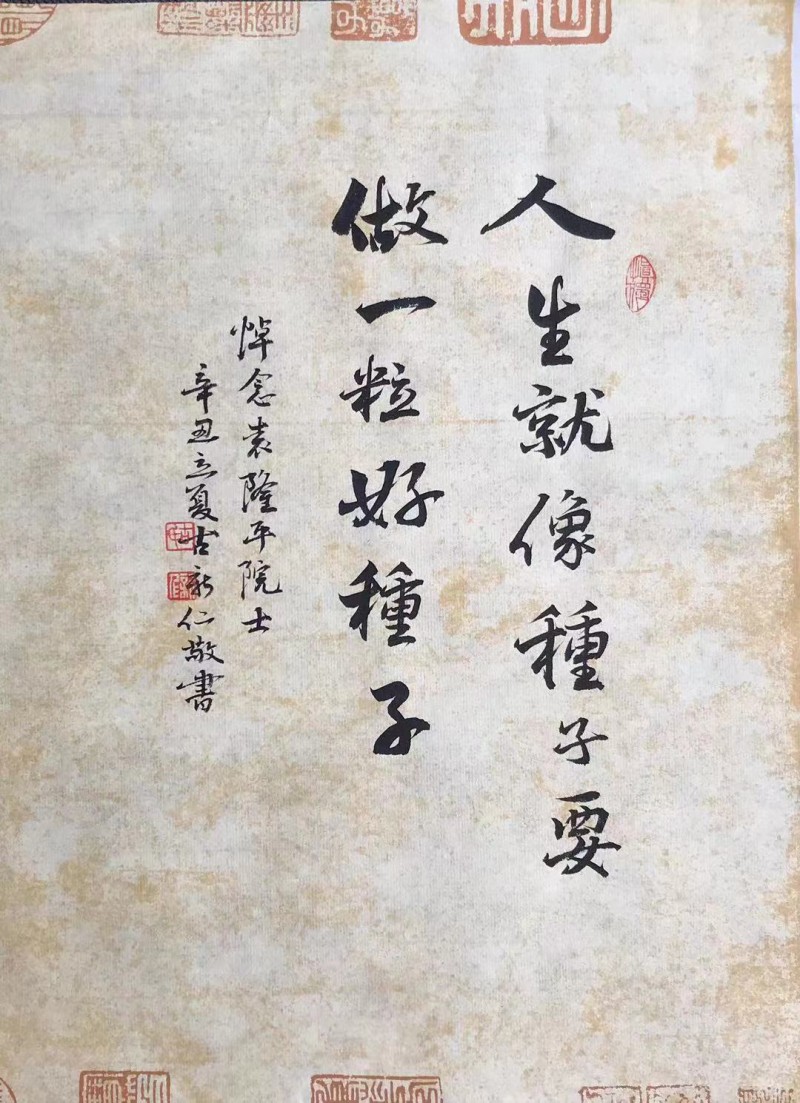 人生就像種子要
做一粒好種子
悼念袁隆平院士
辛丑立夏古新仁敬書